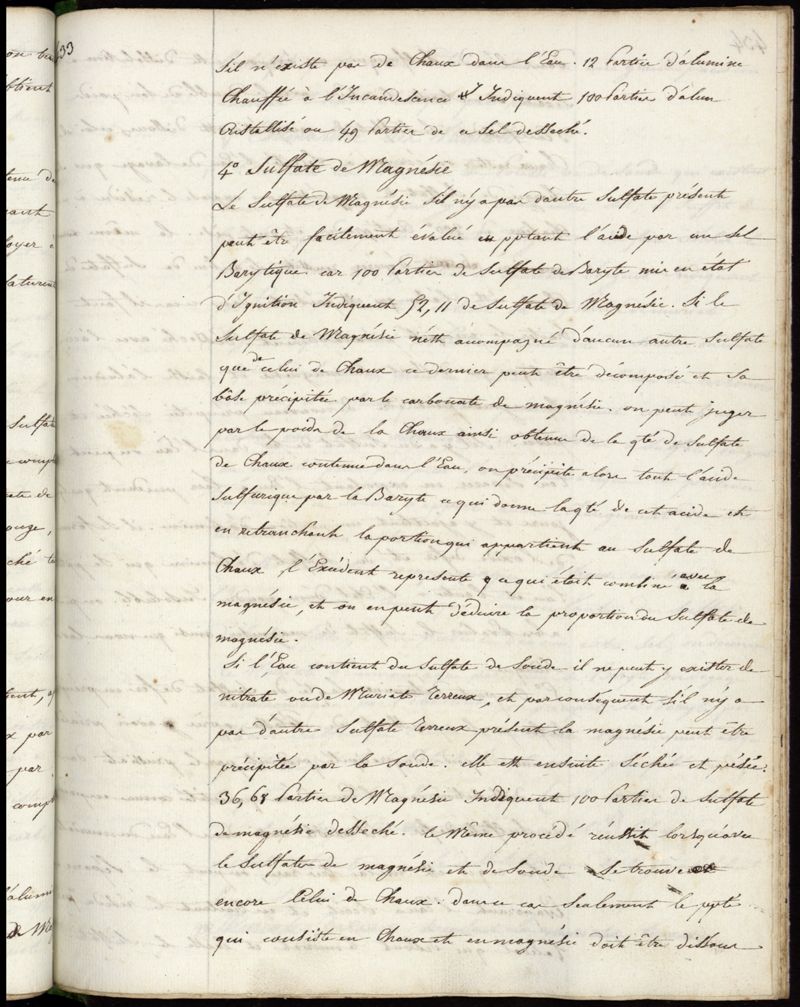 433
S'il n'existe pas de Chaux dans l'Eau. 12 Parties d'alumine
Chauffée à l'Incandescence Indiquent 100 Parties d'alun
Cristallisé ou 49 Parties de ce Sel desseché.
4° Sulfate de Magnésie
Le Sulfate de Magnésie s'il n'y a pas d'autre Sulfate présent
peut être facilement évalué en pptant l'acide par un sel
Barytique. car 100 Parties de Sulfate de Baryte mis en état
d'Ignition Indiquent 52,11 de Sulfate de Magnésie. Si le
Sulfate de Magnésie n'est accompagné d'aucun autre Sulfate
que de celui de Chaux ce dernier peut être décomposé et sa
bâse précipitée par le carbonate de magnésie. on peut juger
par le poids de la Chaux ainsi obtenue de la qté de Sulfate
de Chaux contenue dans l'Eau, on précipite alors tout l'acide
Sulfurique par la Baryte ce qui donne la qté de cet acide et
en retranchant la portion qui appartient au Sulfate de
Chaux, l'Exédent represente ce qui étoit combiné avec la
magnésie, et on en peut déduire la proportion du Sulfate de
magnésie.
Si l'Eau contient du Sulfate de Soude il ne peut y exister de
nitrate ou de Muriate Terreux, et par conséquent s'il n'y a
pas d'autre Sulfate Terreux présent la magnésie peut être
précipitée par la Soude. elle est ensuite séchée et pésée:
36,68 Parties de Magnésie Indiquent 100 Parties de Sulfate
de magnésie desseché. le Même procédé réussit lorsqu'avec
le Sulfate de magnésie et de Soude se trouve
encore Celui de Chaux. dans ce cas seulement le ppté
qui consiste en Chaux et en magnésie doit être dissous